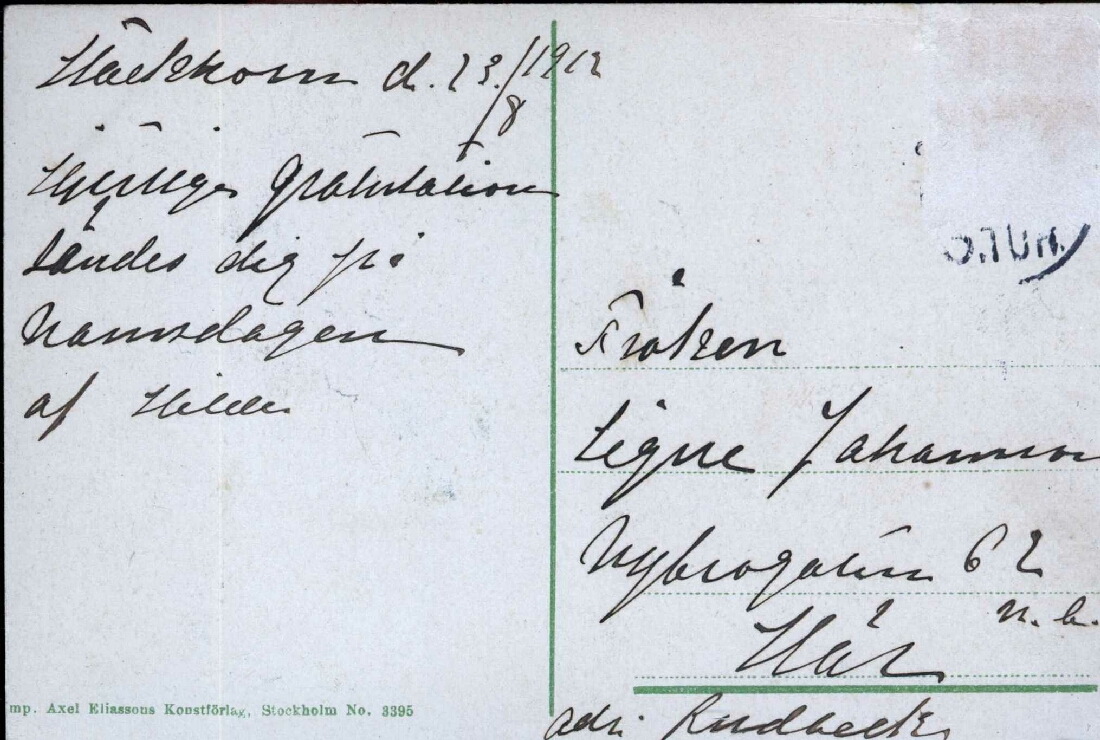 Stockholm d. 23/8 1912
Hjärtliga Gratulation
sändes dig på
Namnsdagen
af Hilda
Fröken
Signe Johansson
Nybrogatan 62
n. b.
Här
adr. Rudbeck
mp. Axel Eliassons Konstförlag, Stockholm No. 3395